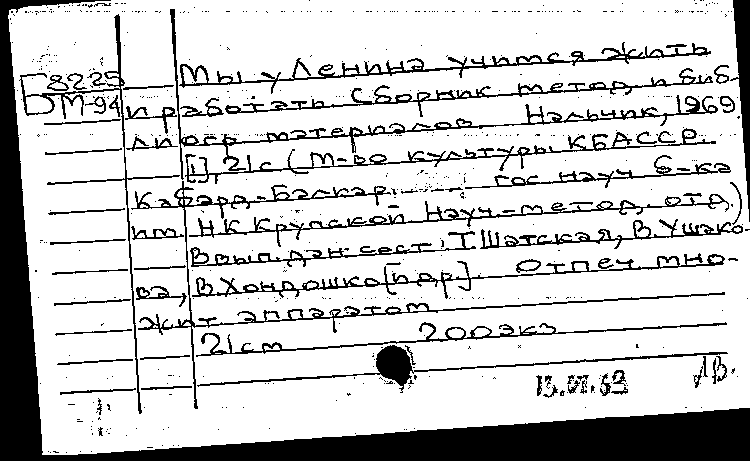 Мы у Ленина учимся жить
Б8225
М-94
и работать. Сборник метод. и биб-
лиогр материалов. Нальчик, 1969
[1], 21с (М-во культуры КБАССР.
Кабард.-Балкар. гос науч б-ка
им. Н К Крупской Науч-метод. отд.)
В вып. дан. сост.: Т Шатская, В. Ушако-
ва, В. Хондошко [и др]. Отпеч мно-
жит аппаратом
21см 200экз
13.07.69 ЛВ.